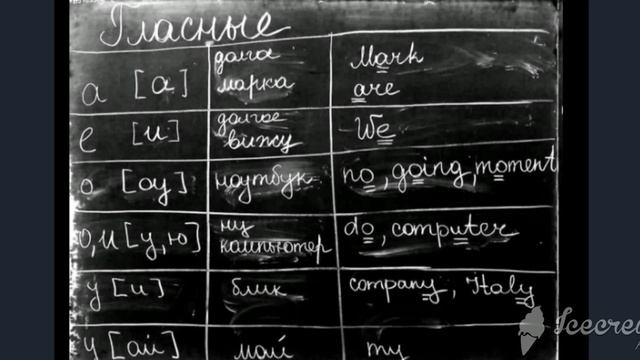 Гласные
a [а] долгая марка Mark are
e [и] долгое вижу We
o [оу] ноутбук no, going, moment
o, u [у, ю] ну компьютер do, computer
y [и] блик company, Italy
y [ай] май my
Icecre